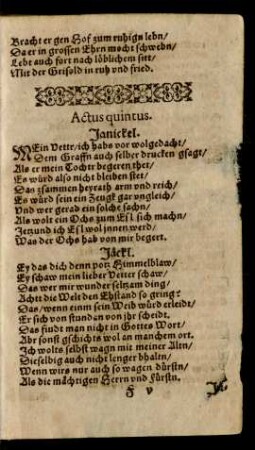 Bracht er gen Hof zum ruhign lebn/
Da er in grossen Ehrn mocht schwebn/
Lebt auch fort nach löblichem sitt/
Mit der Grisold in ruh und fried.
Actus quintus.
Janickel.
MEin Vettr/ ich habs vor wolgedacht/
Dem Graffn auch selber drucken gsagt/
Als er mein Tochtr begeren thet/
Es würd also nicht bleiben stet/
Das zsammen heyrath arm und reich/
Es würd sein ein Zeugk gar ungleich/
Und wer gerad ein solche sachn/
Als wolt ein Ochs zum Esl sich machn/
Jetzund ich Esl wol innen werd/
Was der Ochs hab von mir begert.
Jäckl.
Ey das dich denn potz Himmelblaw/
Ey schaw mein lieber Vetter schaw/
Das wer mir wunder seltzam ding/
Acht die Welt den Ehstand so gring?
Das/ wenn eim sein Weib würd erleidt/
Er sich von stunden von ihr scheidt.
Das findt man nicht in Gottes Wort/
Abr sonst gschichts wol an manchem ort.
Ich wolts selbst wagn mit meiner Altn/
Dieselbig auch nicht lenger bhaltn/
Wenn wirs nur auch so wagen dürstn/
Als die mächtigen Herrn und Fürstn.
F v